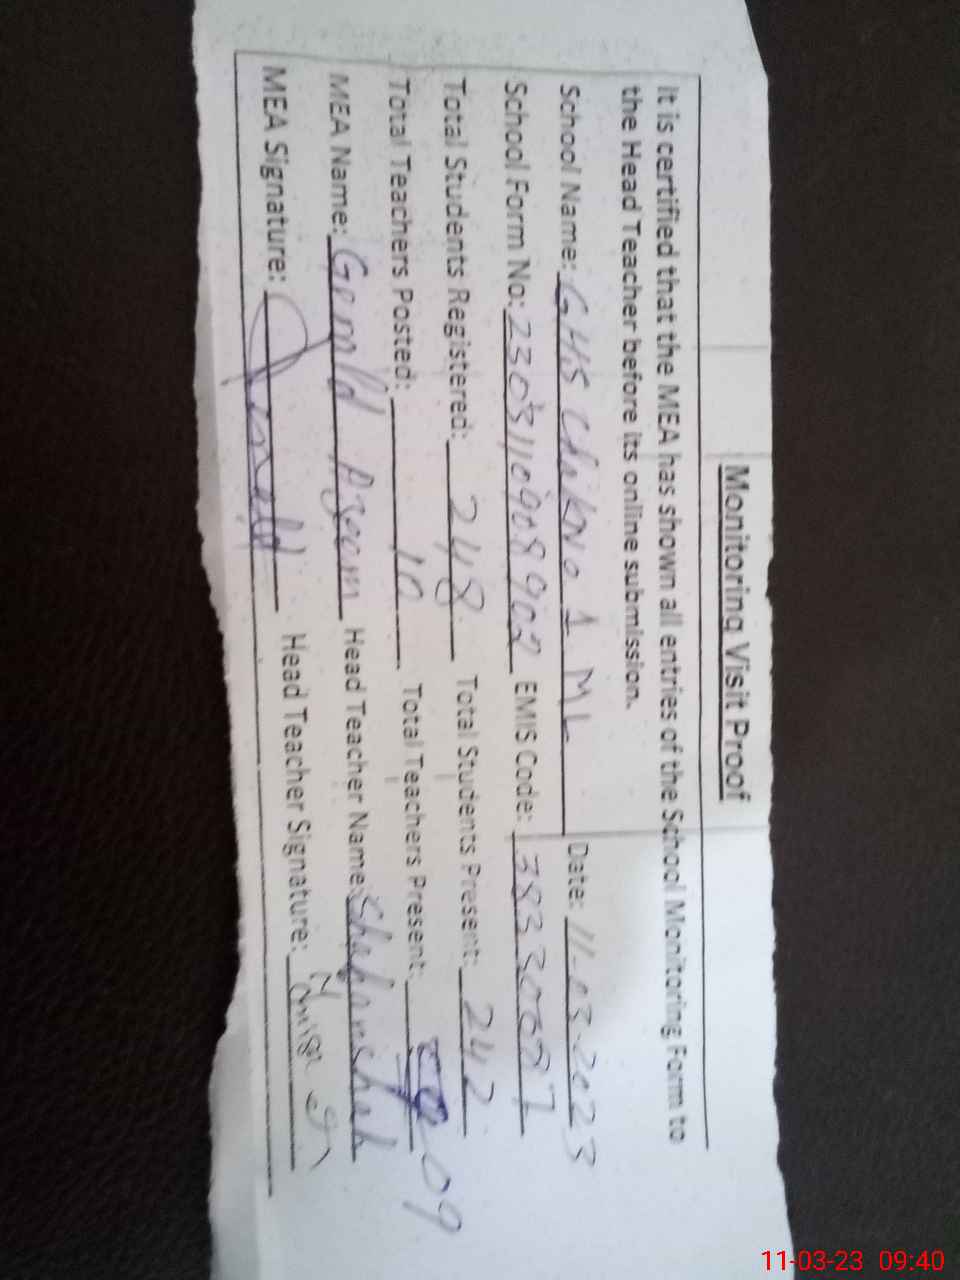 Monitoring Visit Proof
It is certified that the MEA has shown all entries of the School Monitoring Form to
the Head Teacher before its online submission.
School Name: GHS Chak No 1 ML Date: 11-03-2023
School Form No: EMIS Code:
Total Students Registered: 248 Total Students Present: 242
Total Teachers Posted: 10 Total Teachers Present: 09
MEA Name: Head Teacher Name:
MEA Signature: Head Teacher Signature:
11-03-23 09:40